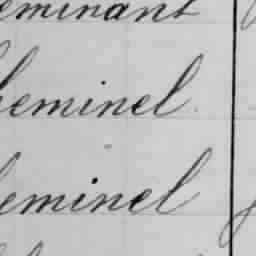 eminant
heminel
heminel